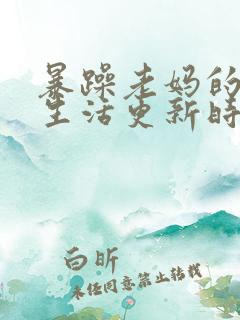 暴躁老妈的
生活更新时
白昕
未经同意禁止转载